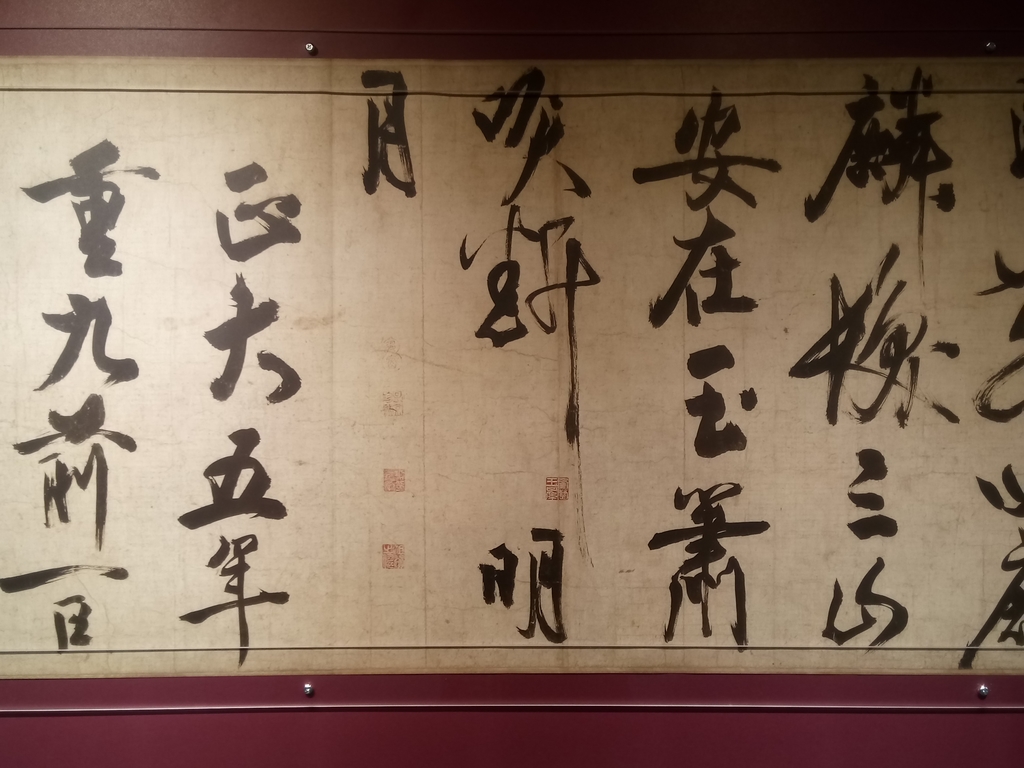 麟髮三山
安在玉簫
吹斷明
月
正大五年
重九前一日